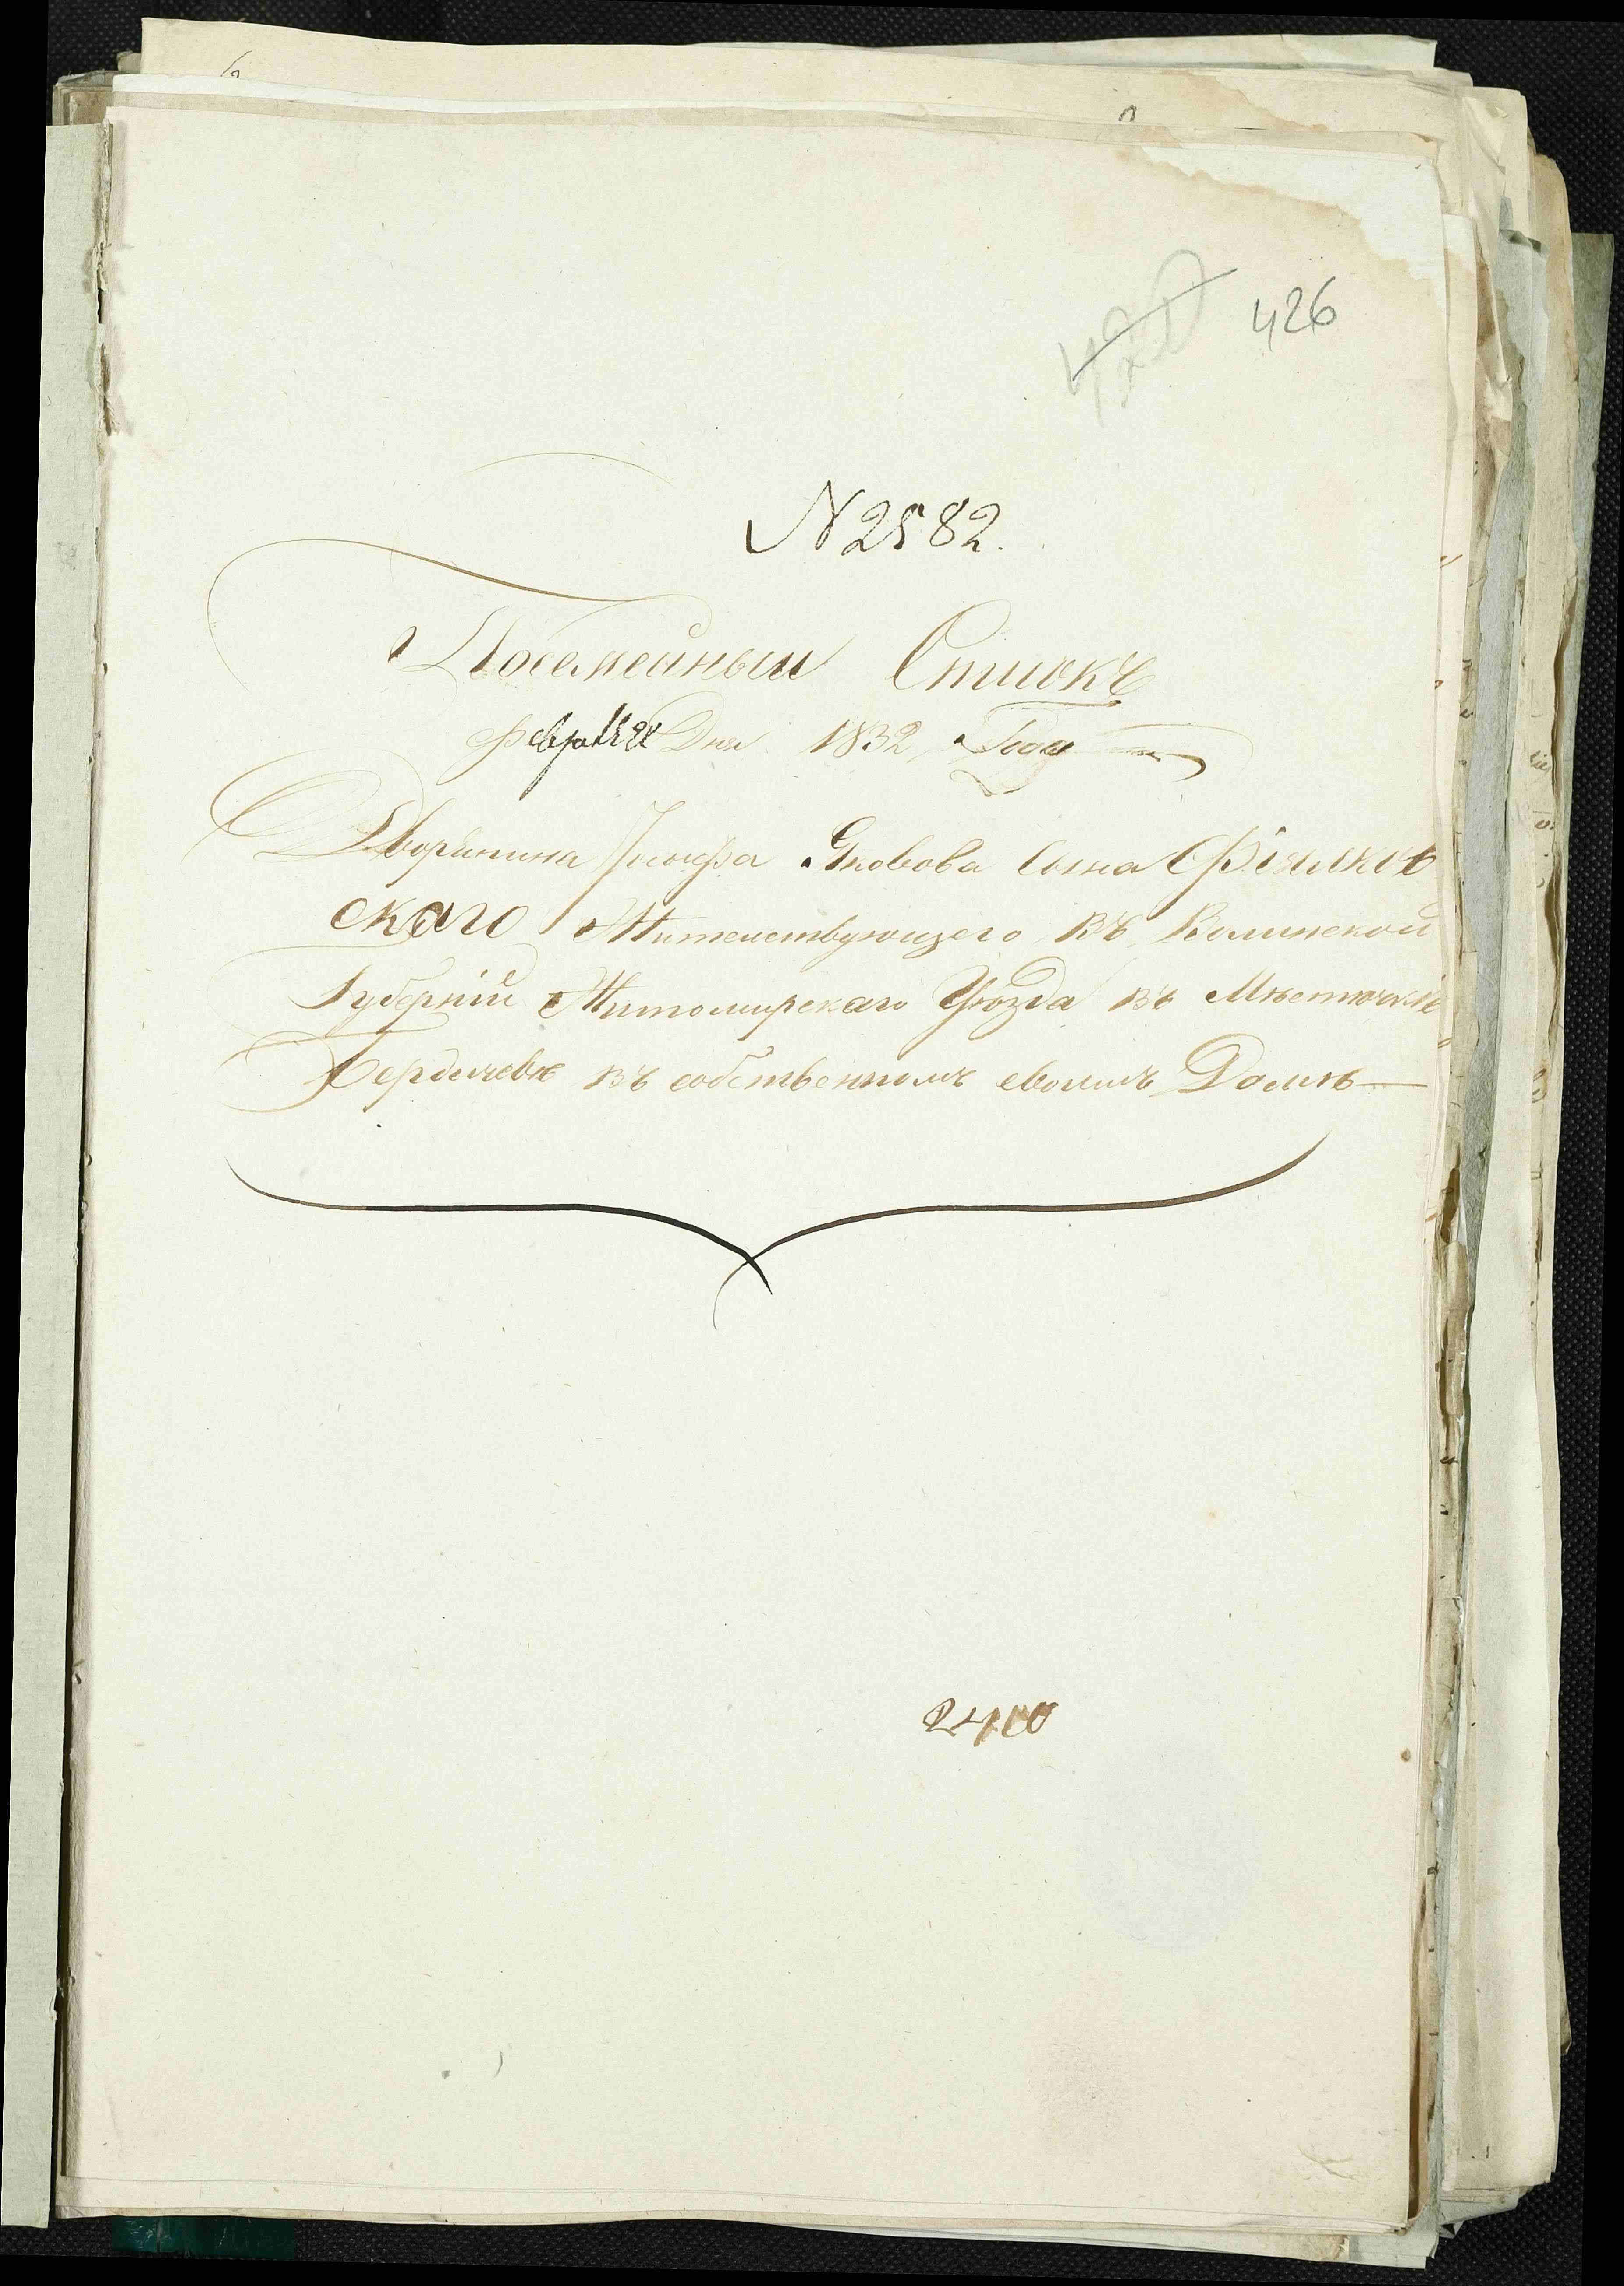 426
N 2582.
Посемейный Список
Февраля Дня 1832 Года
Дворянина Іосифа Яковова Сына Філиков
скаго Жителствующего въ Волинской
Губерніи Житомирскаго Уѣзда въ Мѣсточкѣ
Бердичевѣ въ собственномъ своимъ Домѣ